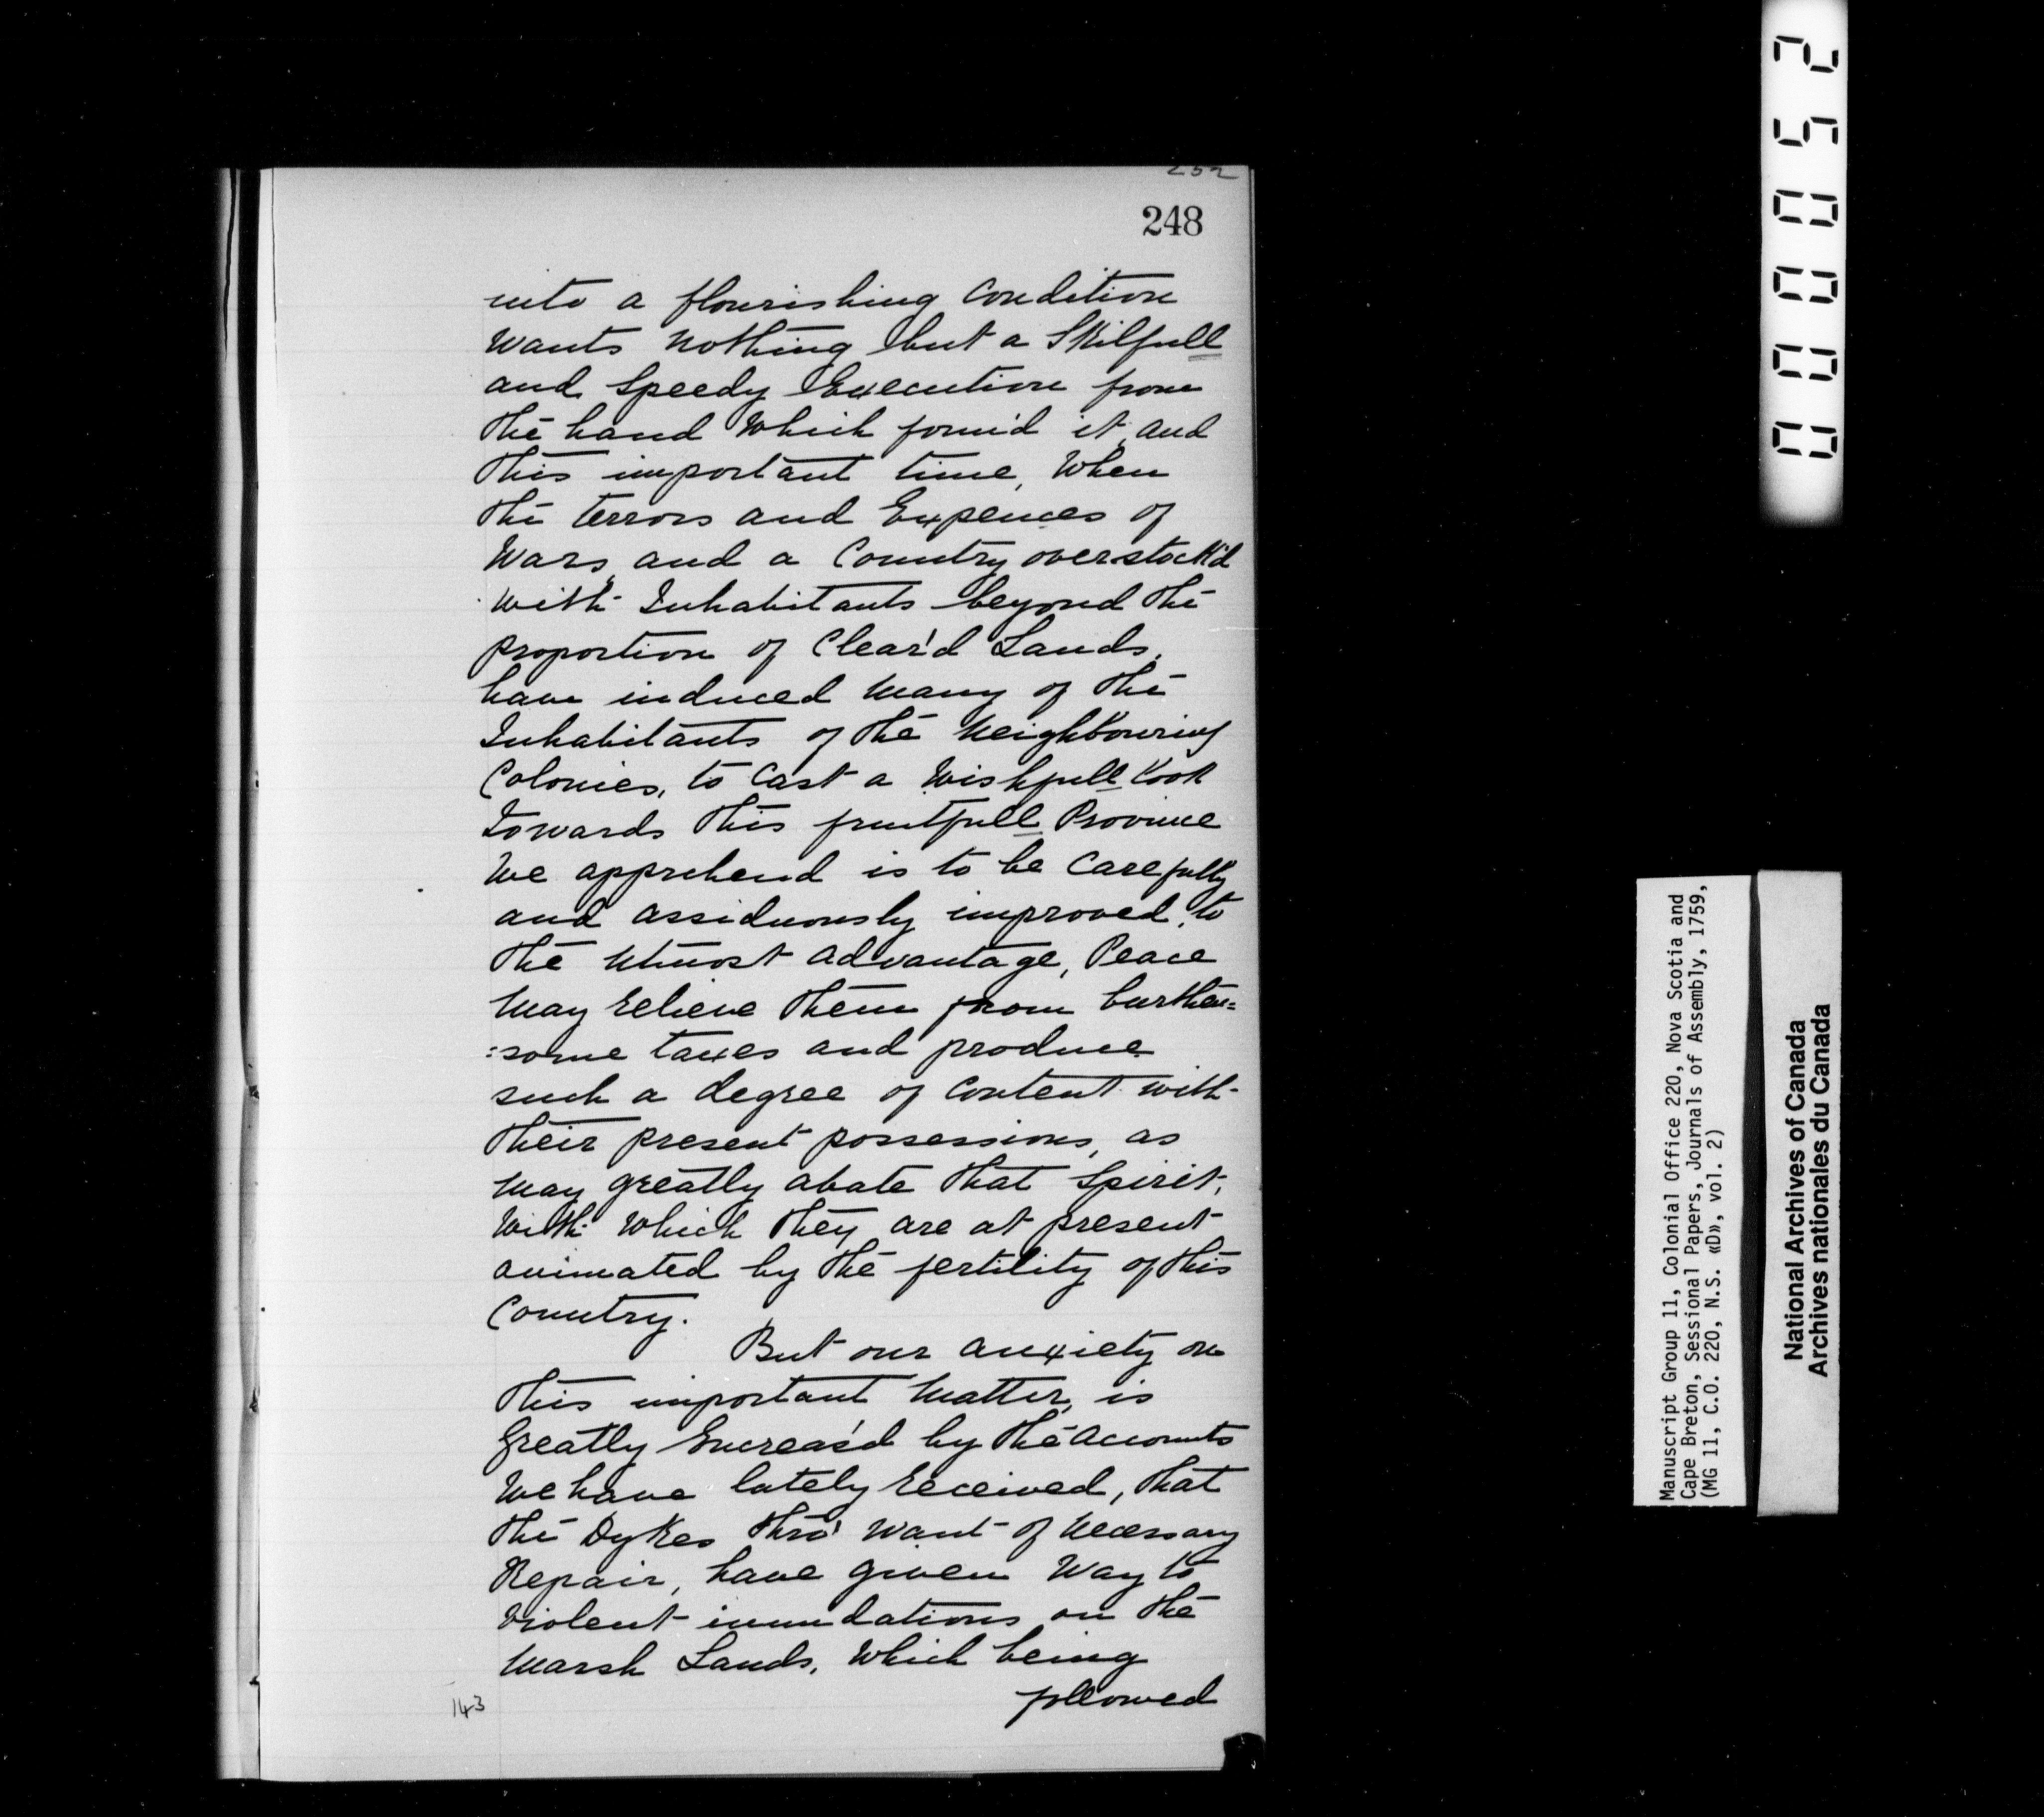 252
248
into a flourishing Condition
wants nothing but a Skilfull
and Speedy Execution from
the hand Which form'd it, and
this important time, When
the terrors and Expences of
Wars, and a Country overstock'd
with Inhabitants beyond the
proportion of Clear'd Lands,
have induced many of the
Inhabitants of the Neighbouring
Colonies, to Cast a Wishfull look
Towards this fruitfull Province
We apprehend is to be Carefully
and assiduously improved, to
the Utmost advantage, Peace
may relieve them from burthen=
=some taxes and produce
such a degree of Content with
their present possessions, as
may greatly abate that Spirit,
With Which they are at present
animated by the fertility of this
Country.
But our anxiety on
this important Matter, is
Greatly Encreas'd by the accounts
We have lately received, that
the Dykes thro' want of Necessary
Repair, have given Way to
violent inundations on the
Marsh Lands, Which being
followed
143
000052
Manuscript Group 11, Colonial Office 220, Nova Scotia and
Cape Breton, Sessional Papers, Journals of Assembly, 1759,
(MG 11, C.O. 220, N.S. «D», vol. 2)
National Archives of Canada
Archives nationales du Canada